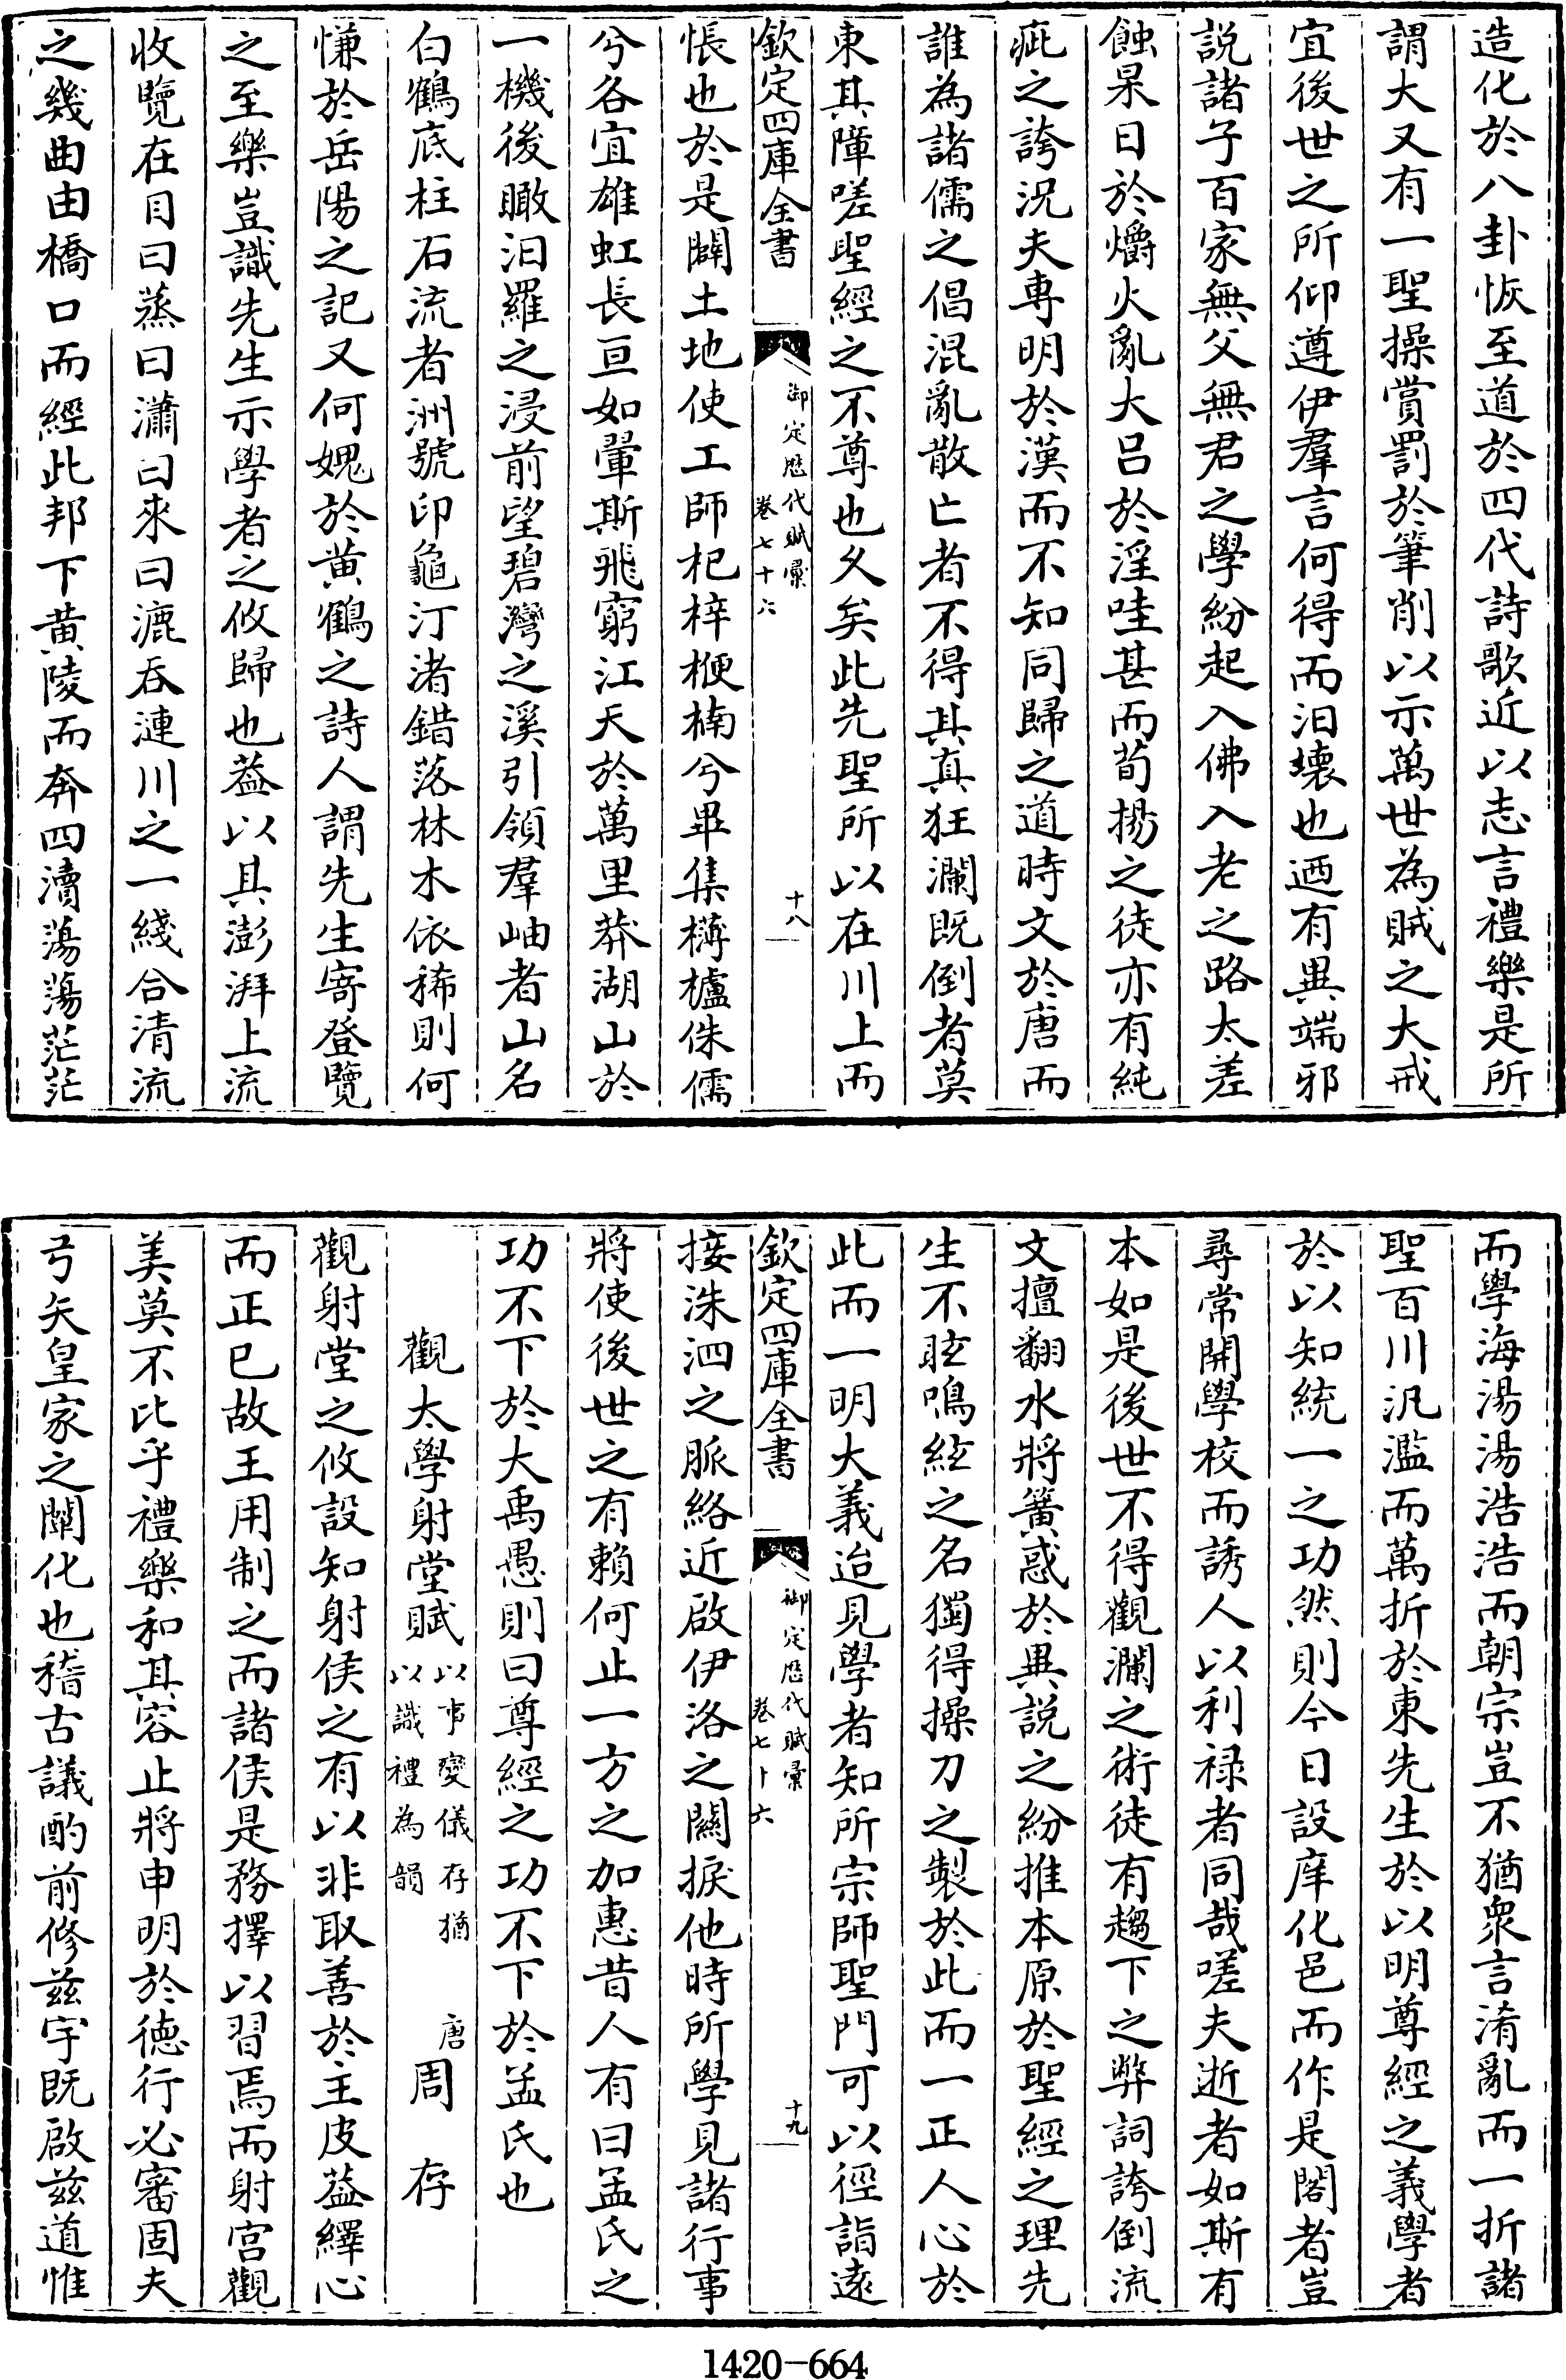 造化於八卦恢至道於四代詩歌近以志言禮樂是所
謂大又有一聖操賞罰於筆削以示萬世為賊之大戒
宜後世之所仰遵伊羣言何得而汩壞也迺有異端邪
説諸子百家無父無君之學紛起入佛入老之路太差
蝕杲日於爝火亂大吕於淫哇甚而荀揚之徒亦有純
疵之誇況夫専明於漢而不知同歸之道時文於唐而
誰為諸儒之倡混亂散亡者不得其真狂瀾既倒者莫
東其障嗟聖經之不尊也乆矣此先聖所以在川上而
欽定四庫全書
御定歴代賦彚
卷七十六
十八
悵也於是闢土地使工師杞梓楩楠兮畢集欂櫨侏儒
兮各宜雄虹長亘如翬斯飛窮江天於萬里莽湖山於
一機後瞰汩羅之浸前望碧灣之溪引領羣岫者山名
白鶴底柱石流者洲號印龜汀渚錯落林木依稀則何
慊於岳陽之記又何媿於黄鶴之詩人謂先生寄登覽
之至樂豈識先生示學者之攸歸也葢以其澎湃上流
收覽在目曰蒸曰瀟曰來曰漉吞漣川之一綫合清流
之幾曲由橋口而經此邦下黄陵而奔四瀆蕩蕩茫茫
而學海湯湯浩浩而朝宗豈不猶衆言淆亂而一折諸
聖百川汎濫而萬折於東先生於以明尊經之義學者
於以知統一之功然則今日設庠化邑而作是閣者豈
尋常開學校而誘人以利禄者同哉嗟夫逝者如斯有
本如是後世不得觀瀾之術徒有趨下之弊詞誇倒流
文擅翻水將簧惑於異說之紛推本原於聖經之理先
生不昡鳴絃之名獨得操刀之製於此而一正人心於
此而一明大義迨見學者知所宗師聖門可以徑詣逺
欽定四庫全書
御定歴代賦彚
卷七十六
十九
接洙泗之脈絡近啟伊洛之關捩他時所學見諸行事
將使後世之有賴何止一方之加惠昔人有曰孟氏之
功不下於大禹愚則曰尊經之功不下於孟氏也
觀太學射堂賦以事變儀存猶以識禮為韻　唐周存
觀射堂之攸設知射侯之有以非取善於主皮葢繹心
而正已故王用制之而諸侯是務擇以習焉而射宫觀
美莫不比乎禮樂和其容止將申明於徳行必審固夫
弓矢皇家之闡化也稽古議酌前修兹宇既啟兹道惟
1420-664